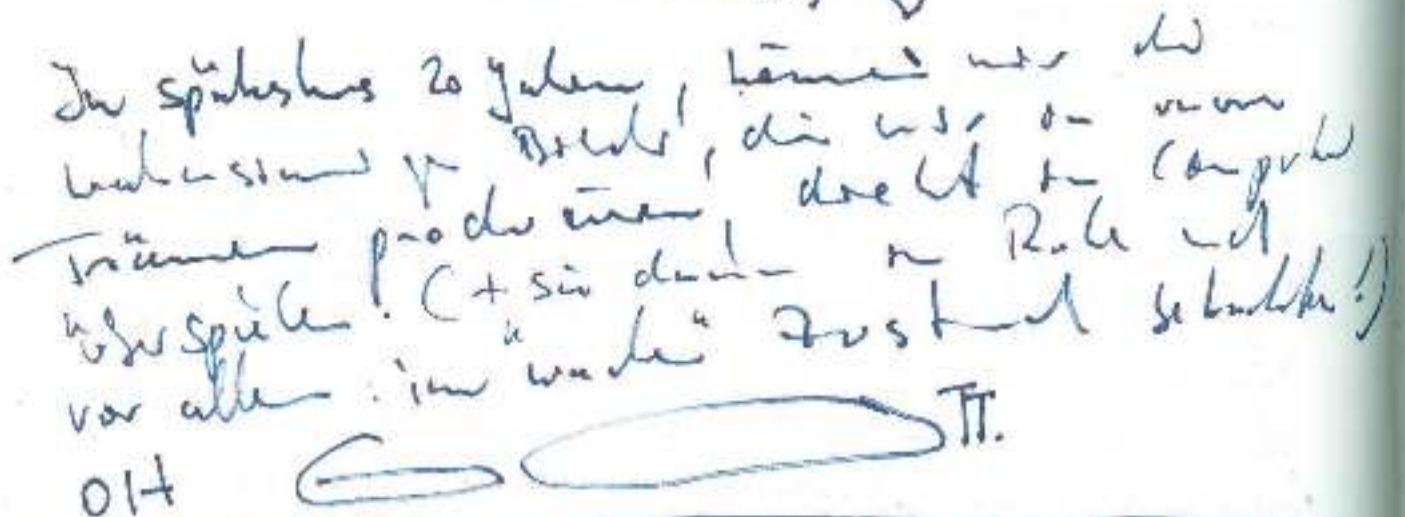 In spätestens 20 Jahren, können wir die
Bilder, die wir in
Träumen produzieren, direkt in Computer
überspielen! (+ sie dann in Ruhe und
vor allem: im "wachen" Zustand betrachten!)
OH TT.